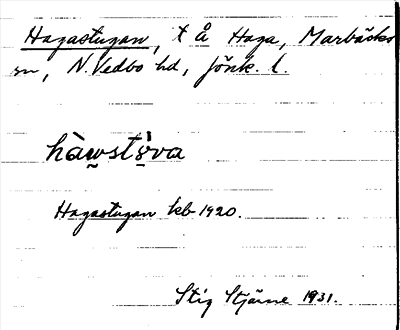 Hagastugan, t å Haga, Marbäcks
sn, N. Vedbo hd, Jönk. l.
hàw̲stv̲̀va
Hagastugan kb 1920.
Stig Stjärne 1931.